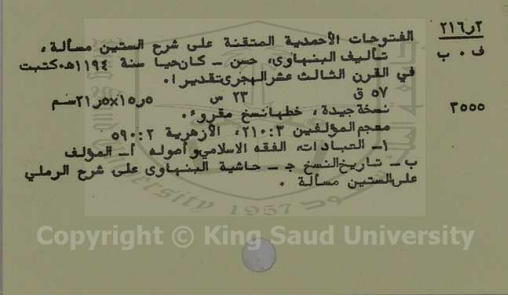 ٢ر٢١٦ الفتوحات الأحمدية المتقنة على شرح الستين مسألة،
ف ٠ ب تأليف البنهاوى، حسن - كان حيا سنة ١١٩٤هـ٠ كتبت
في القرن الثالث عشر الهجرى تقديرا ٠
٥٧ ق ٢٣ س ٥ر١٥×٥ر٢١سم
٣٥٥٥ نسخة جيدة، خطها نسخ مقروء ٠
معجم المؤلفين ٣:٢١٠، الأزهرية ٢:٥٩٠
١- العبادات، الفقه الاسلامي وأصوله أ- المؤلف
ب- تاريخ النسخ ج- حاشية البنهاوى على شرح الرملي
على الستين مسألة ٠
University 1957
Copyright © King Saud University